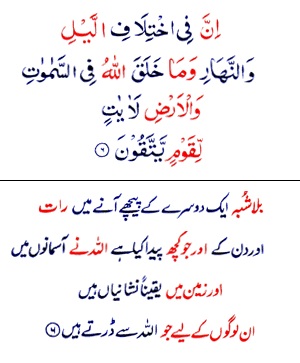 اِنَّ فِی اخْتِلَافِ الَّیْلِ
وَالنَّهَارِ وَمَا خَلَقَ اللّٰهُ فِی السَّمٰوٰتِ
وَالْاَرْضِ لَاٰیٰتٍ
لِّقَوْمٍ یَّتَّقُوْنَ ۶
بلاشُبہ ایک دوسرے کے پیچھے آنے میں رات
اور دن کے اور جو کچھ پیدا کیا ہے اللہ نے آسمانوں میں
اور زمین میں یقیناً نشانیاں ہیں
ان لوگوں کے لیے جو اللہ سے ڈرتے ہیں ۶